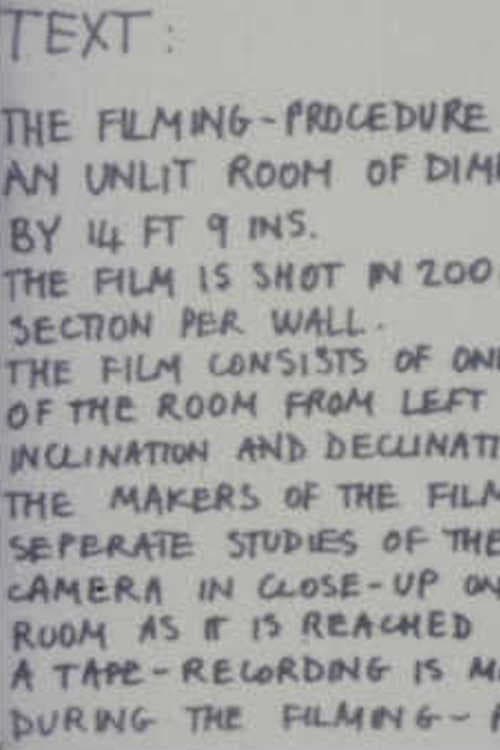 TEXT:
THE FILMING-PROCEDURE
AN UNLIT ROOM OF DIM
BY 14 FT 9 INS.
THE FILM IS SHOT IN 200
SECTION PER WALL.
THE FILM CONSISTS OF ON
OF THE ROOM FROM LEFT
INCLINATION AND DECLINATI
THE MAKERS OF THE FILM
SEPERATE STUDIES OF THE
CAMERA IN CLOSE-UP ON
ROOM AS IT IS REACHED
A TAPE-RECORDING IS M
DURING THE FILMING-